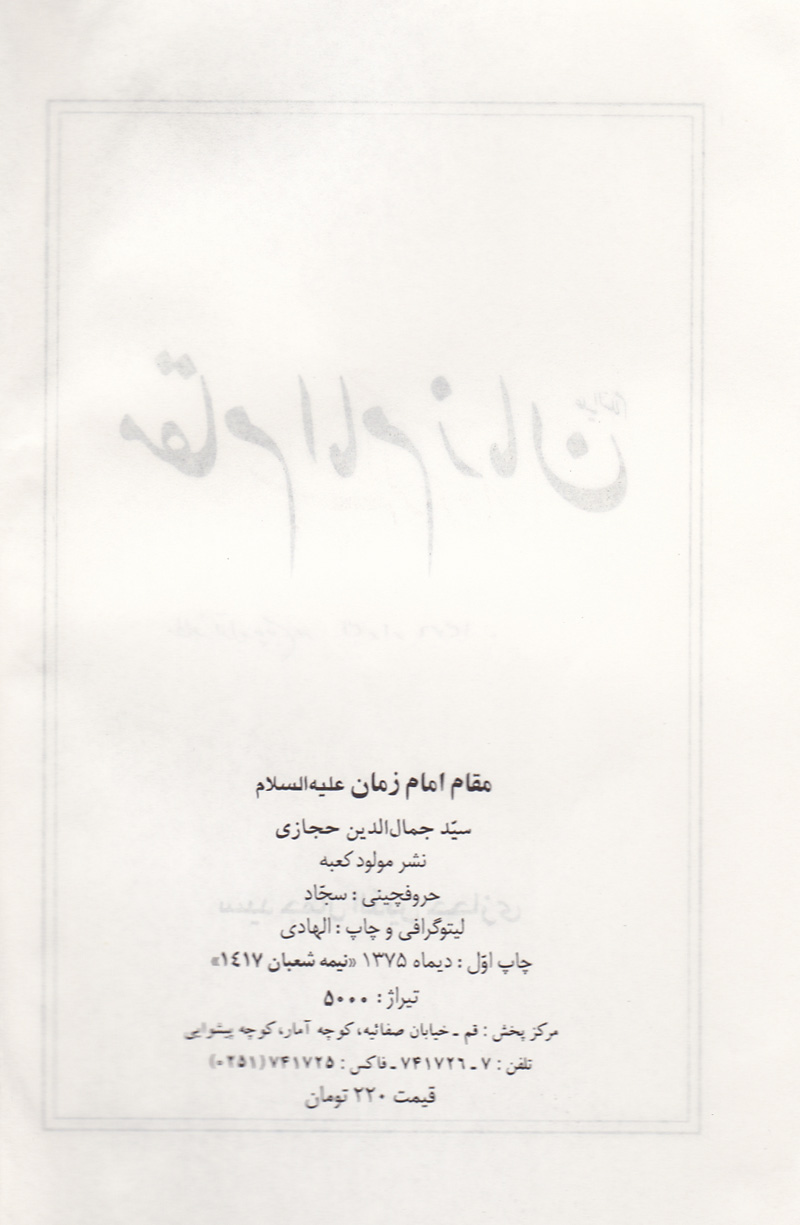 مقام امام زمان علیه‌السلام
سیّد جمال‌الدین حجازی
نشر مولود کعبه
حروفچینی : سجّاد
لیتوگرافی و چاپ : الهادی
چاپ اوّل : دیماه ۱۳۷۵ «نیمه شعبان ۱٤۱۷»
تیراژ : ۵۰۰۰
مرکز پخش : قم ـ خیابان صفائیه، کوچه آمار، کوچه پیشوایی
تلفن : ۷ ـ ۷۴۱۷۲٦ ـ فاکس : ۷۴۱۷۲۵ (۰۲۵۱)
قیمت ۲۲۰ تومان